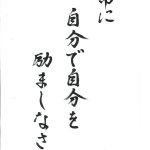 常に
自分で自分を
励ましなさ